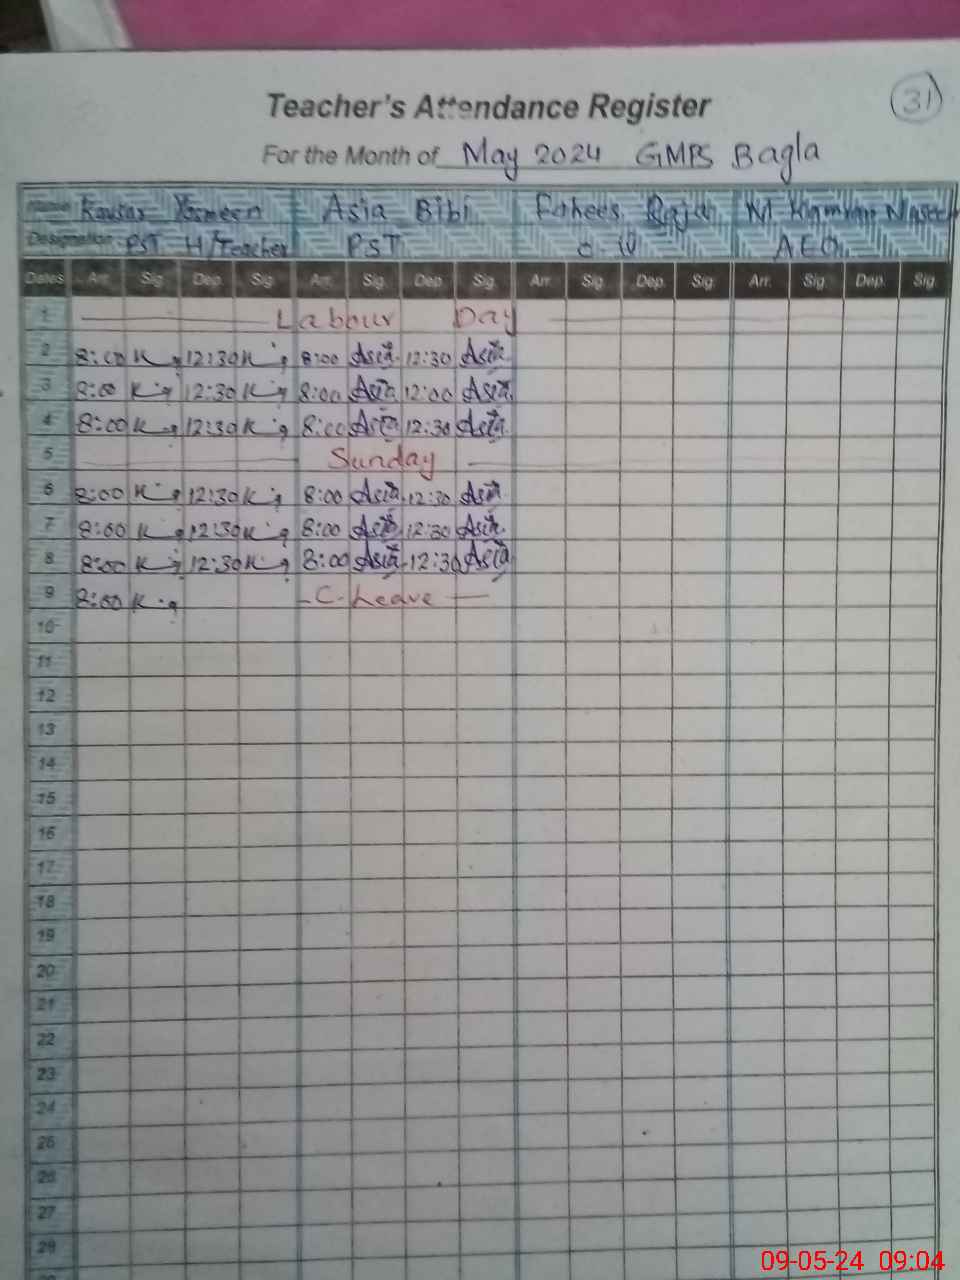 31
Teacher's Attendance Register
For the Month of May 2024 GMPS Bagla
Name Kausar Yasmeen Asia Bibi Rajah M Kamran
Designation PST H/Teacher PST C-IV AEO
Dates Arr. Sig. Dep. Sig. Arr. Sig. Dep. Sig. Arr. Sig. Dep. Sig. Arr. Sig. Dep. Sig.
1 Labour Day
2 8:00 K 12:30 K 8:00 Asia 12:30 Asia
3 8:00 K 12:30 K 8:00 Asia 12:00 Asia
4 8:00 K 12:30 K 8:00 Asia 12:30 Asia
5 Sunday
6 8:00 K 12:30 K 8:00 Asia 12:30 Asia
7 8:00 K 12:30 K 8:00 Asia 12:30 Asia
8 8:00 K 12:30 K 8:00 Asia 12:30 Asia
9 8:00 K C-Leave
10
11
12
13
14
15
16
17
18
19
20
21
22
23
24
25
26
27
28
09-05-24 09:04